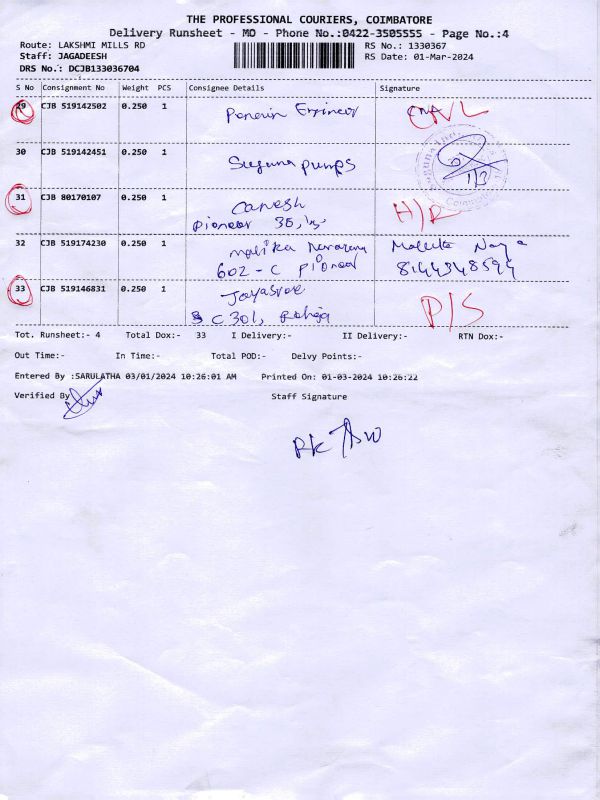 THE PROFESSIONAL COURIERS, COIMBATORE
Delivery Runsheet - MO - Phone No.:0422-3505555 - Page No.:4
Route: LAKSHMI MILLS RD RS No.: 1330367
Staff: JAGADEESH RS Date: 01-Mar-2024
DRS No.: DCJB133036704
S No Consignment No Weight PCS Consignee Details Signature
29 CJB 519142502 0.250 1 Engineer
30 CJB 519142451 0.250 1 Suguna Pumps 1/3
31 CJB 80170107 0.250 1 Ganesh
Pioneer
32 CJB 519174230 0.250 1
602 - C Pioneer 8144348594
33 CJB 519146831 0.250 1 Jayasree P/S
C 301,
Tot. Runsheet:- 4 Total Dox:- 33 I Delivery:- II Delivery:- RTN Dox:-
Out Time:- In Time:- Total POD:- Delvy Points:-
Entered By :SARULATHA 03/01/2024 10:26:01 AM Printed On: 01-03-2024 10:26:22
Verified By Staff Signature